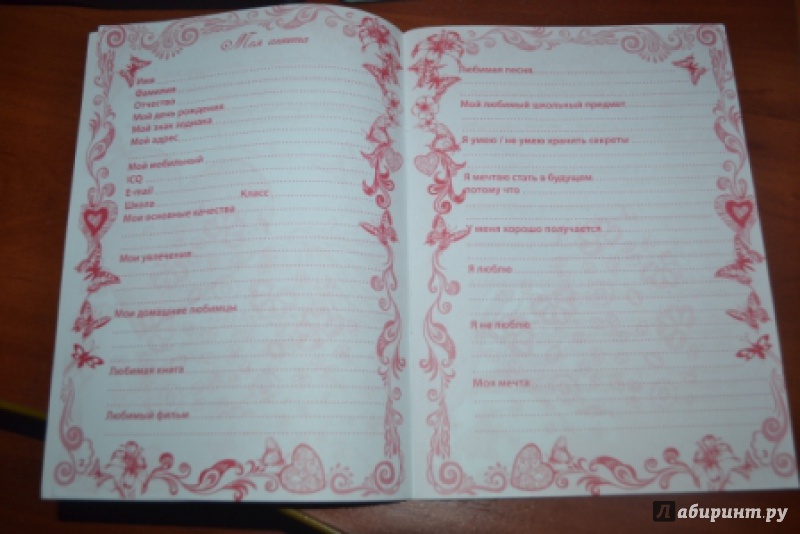 Моя анкета
Имя
Фамилия
Отчество
Мой день рождения
Мой знак зодиака
Мой адрес
Мой мобильный
ICQ
E-mail
Школа Класс
Мои основные качества
Мои увлечения
Мои домашние любимцы
Любимая книга
Любимый фильм
2
Любимая песня
Мой любимый школьный предмет
Я умею / не умею хранить секреты
Я мечтаю стать в будущем
потому что
У меня хорошо получается
Я люблю
Я не люблю
Моя мечта
3
Лабиринт.ру